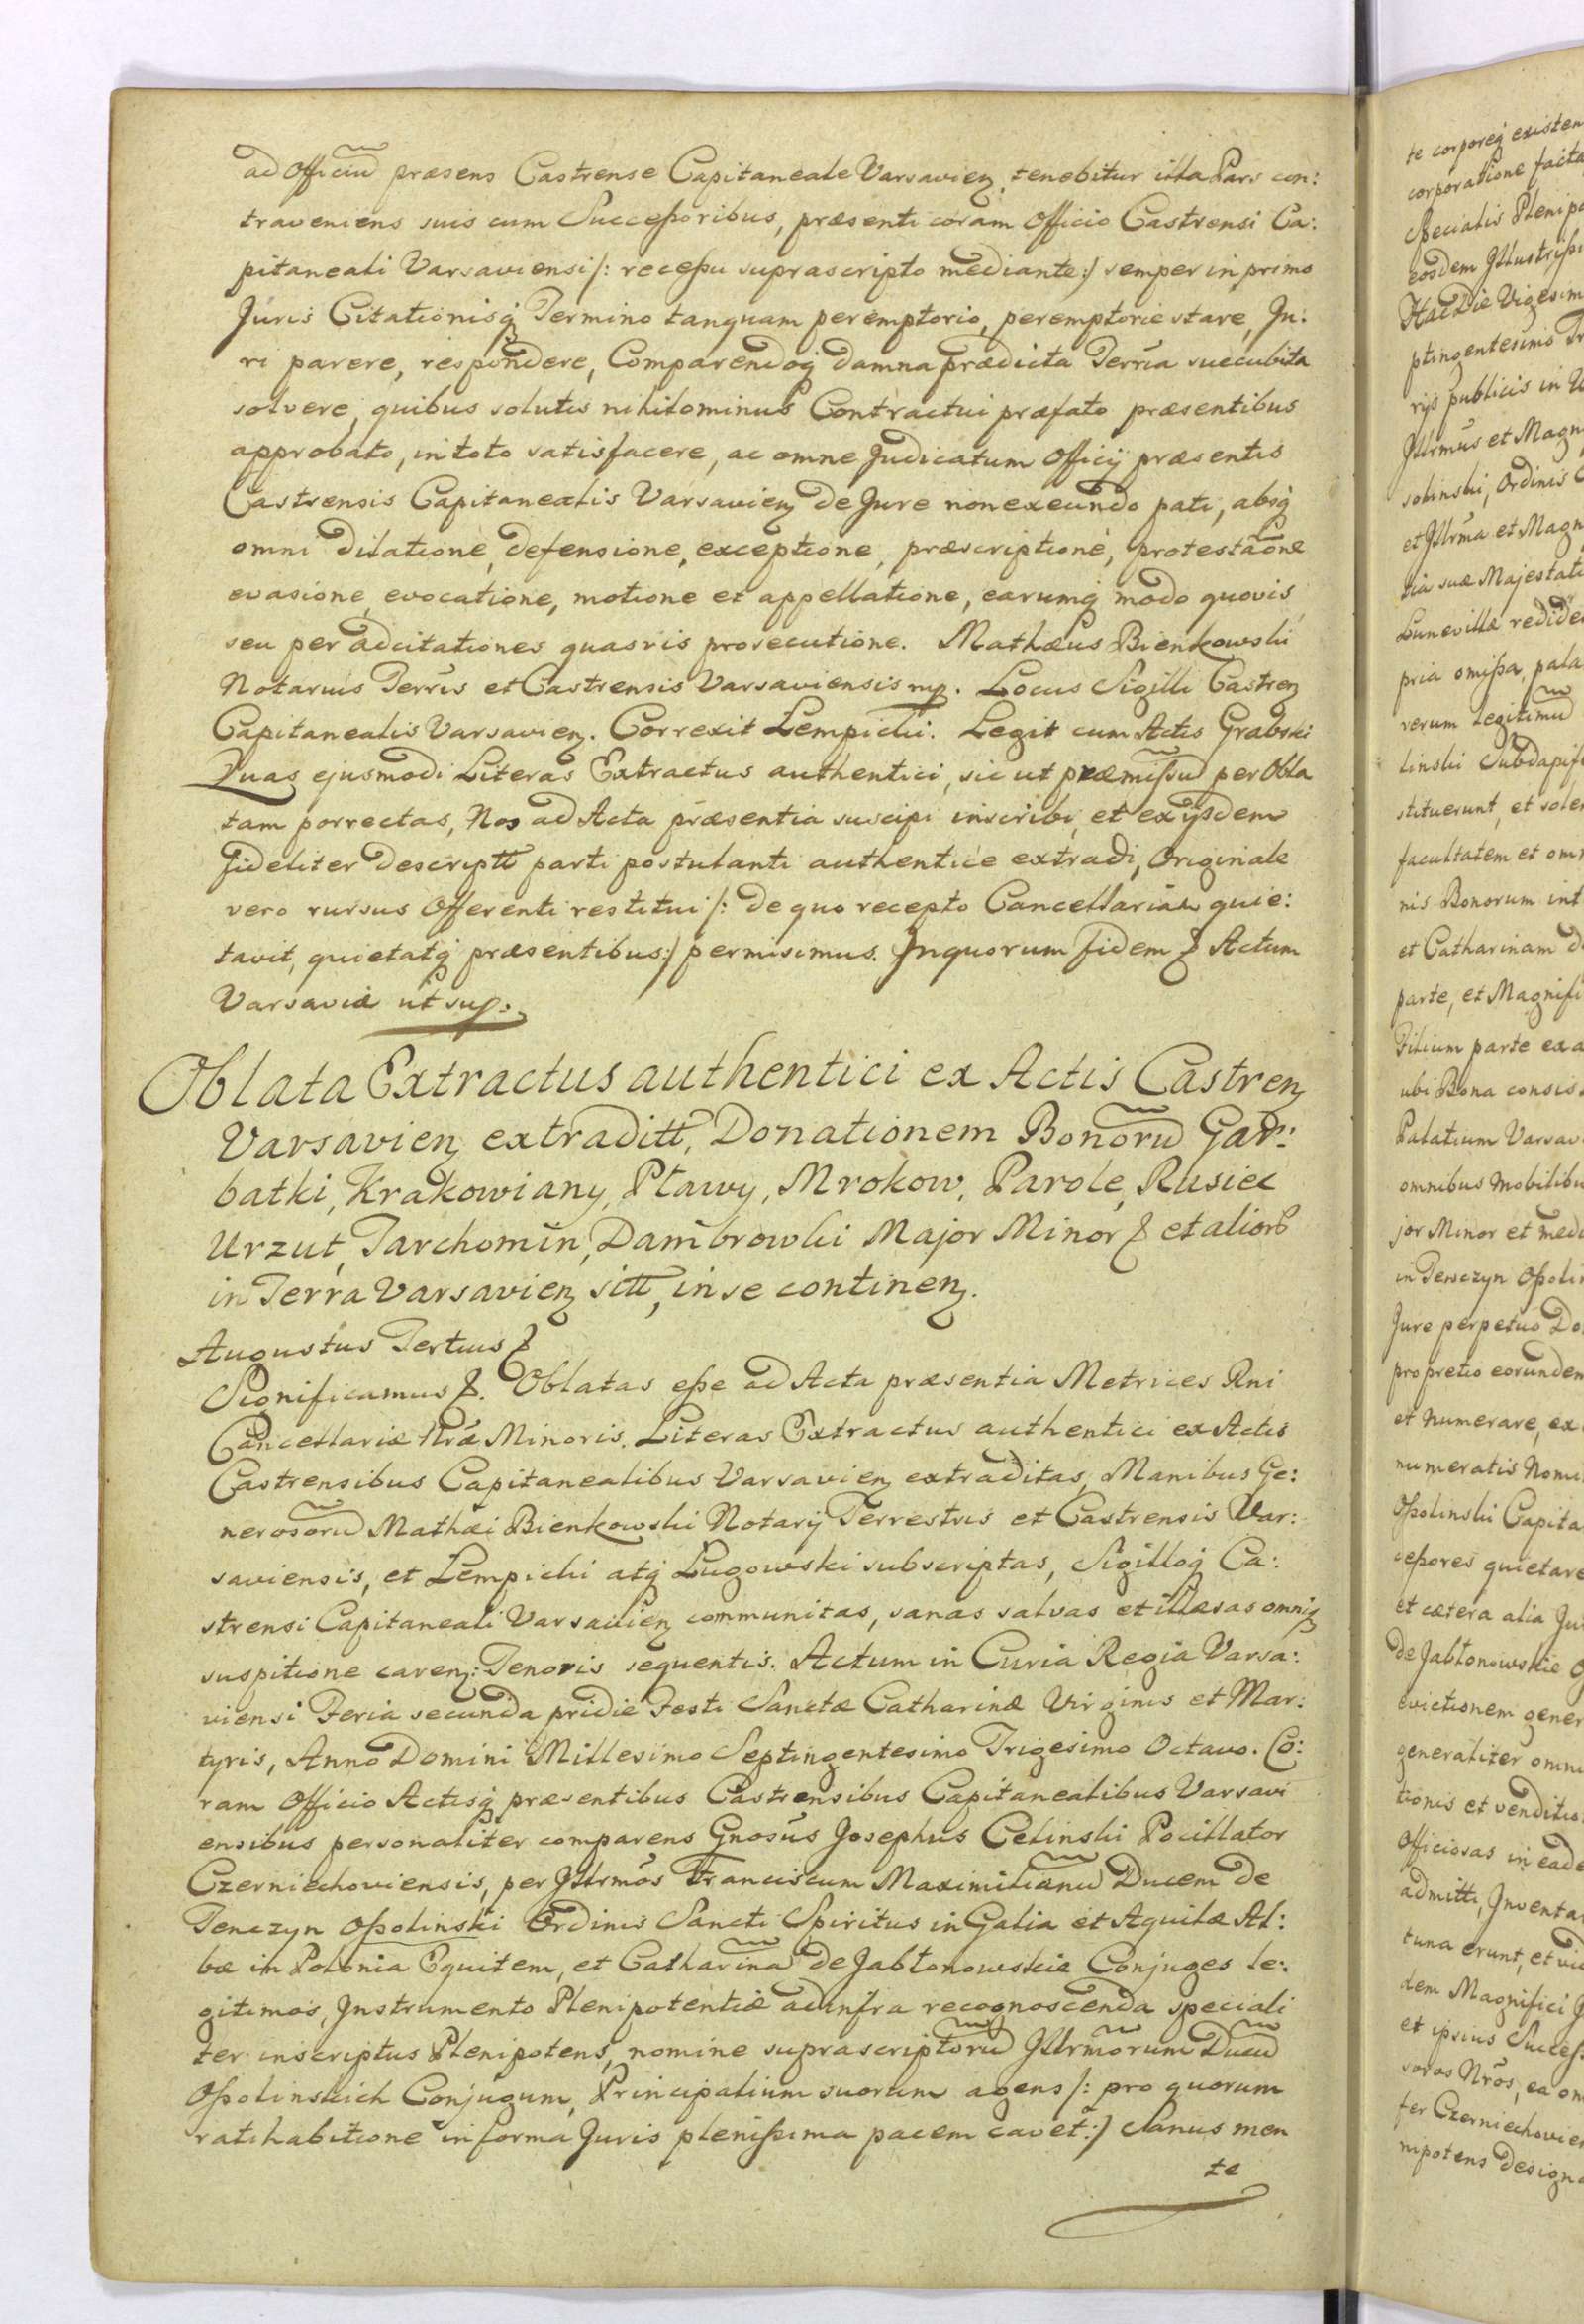 ad Officiũ præsens Castrense Capitaneale Varsavien, tenebitur illa Pars con:
traveniens suis cum Successoribus, præsenti coram Officio Castrensi Ca:
pitaneali Varsaviensi /: recessu suprascripto mediante :/ semper in primo
Juris Citationisq Termino tanquam peremptorio, peremptorie stare, Ju:
ri parere, respondere, Comparendoq damna prædicta Terria succubita
solvere, quibus solutis nihilominus Contractui præfato præsentibus
approbato, in toto satisfacere, ac omne Judicatum Officij præsentis
Castrensis Capitanealis Varsavien de Jure non exeundo pati, absq
omni dilatione, defensione, exceptione, præscriptione, protestaõne
evasione, evocatione, motione et appellatione, earumq modo quovis
seu per adcitationes quasvis prosecutione. Mathæus Bienkowski
Notarius Terris et Castrensis Varsaviensis mp. Locus Sigilli Castren
Capitanealis Varsavien. Correxit Lempicki. Legit cum Actis Grabski
Quas ejusmodi Literas Extractus authentici, sic ut præmissũ per Obla
tam porrectas, Nos ad Acta præsentia suscipi inscribi, et ex ijsdem
fideliter descriptt parti postulanti authentice extradi, Originale
vero rursus Offerenti restitui /: de quo recepto Cancellariam quie:
tavit, quietatq præsentibus :/ permisimus. In quorum fidem & Actum
Varsaviæ ut sup.
Oblata Extractus authentici ex Actis Castren
Varsavien extraditt, Donationem Bonorũ Gar:
batki, Krakowiany, Pławy, Mrokow, Parole, Rusiec
Urzut, Tarchomin, Dambrowki Major Minor & et alior
in Terra Varsavien sitt, in se continen.
Augustus Tertius &
Significamus &. Oblatas esse ad Acta præsentia Metrices Rni
Cancellariæ Nræ Minoris. Literas Extractus authentici ex Actis
Castrensibus Capitanealibus Varsavien extraditas, Manibus Ge:
nerosorũ Mathæi Bienkowski Notarij Terrestris et Castrensis Var:
saviensis, et Lempicki atq Lugowski subscriptas, Sigilloq Ca:
strensi Capitaneali Varsavien communitas, sanas salvas et illæsas omniq
suspitione caren: Tenoris sequentis. Actum in Curia Regia Varsa:
viensi Feria secunda pridie Festi Sanctæ Catharinæ Virginis et Mar:
tyris, Anno Domini Millesimo Septingentesimo Trigesimo Octavo. Co:
ram Officio Actisq præsentibus Castrensibus Capitanealibus Varsavi
ensibus personaliter comparens Gnosus Josephus Celinski Pocillator
Czerniechoviensis, per Jllrmõs Franciscum Maximilianũ Ducem de
Tenczyn Ossolinski Ordinis Sancti Spiritus in Galia et Aquilæ Al:
bæ in Polonia Equitem, et Catharinã de Jabłonowskie Conjuges le:
gitimos, Instrumento Plenipotentiæ ad infra recognoscenda speciali
ter inscriptus Plenipotens, nomine suprascriptorũ Jllrmõrum Ducũ
Ossolinskich Conjugum, Principalium suorum agens /: pro quorum
ratihabitione in forma Juris plenissima pacem cavet :/ Sanus men
te
te corporeq existen
corporatione facta
Specialis Plenipo
eosdem Jllustriss
Hac Die Vigesim
ptingentesimo Tr
rijs publicis in
Jllrmus et Magn
solinski, Ordinis
et Jllrma et Magn
tia suæ Majestati
Lunevillæ
pria omissa, pala
verum legitimũ
linski Subdapif
stituerunt, et sole
facultatem et om
nis Bonorum int
et Catharinam d
parte, et Magnifi
Filium parte ex a
ubi Bona consis
Palatium Varsav
omnibus Mobilibu
jor Minor et medi
in Tenczyn Ossolin
Jure perpetuo Do
pro pretio eorundem
et Numerare, ex
numeratis Nomi
Ossolinski Capita
cessores quietare
et cætera alia Ju
de Jabłonowskie
evictionem gener
generaliter omni
tionis et venditio
Officiosas in eade
admitti, Inventa
tuna erunt, et vid
dem Magnifici
et ipsius Success
Nros, ea om
fer Czerniechovien
nipotens design